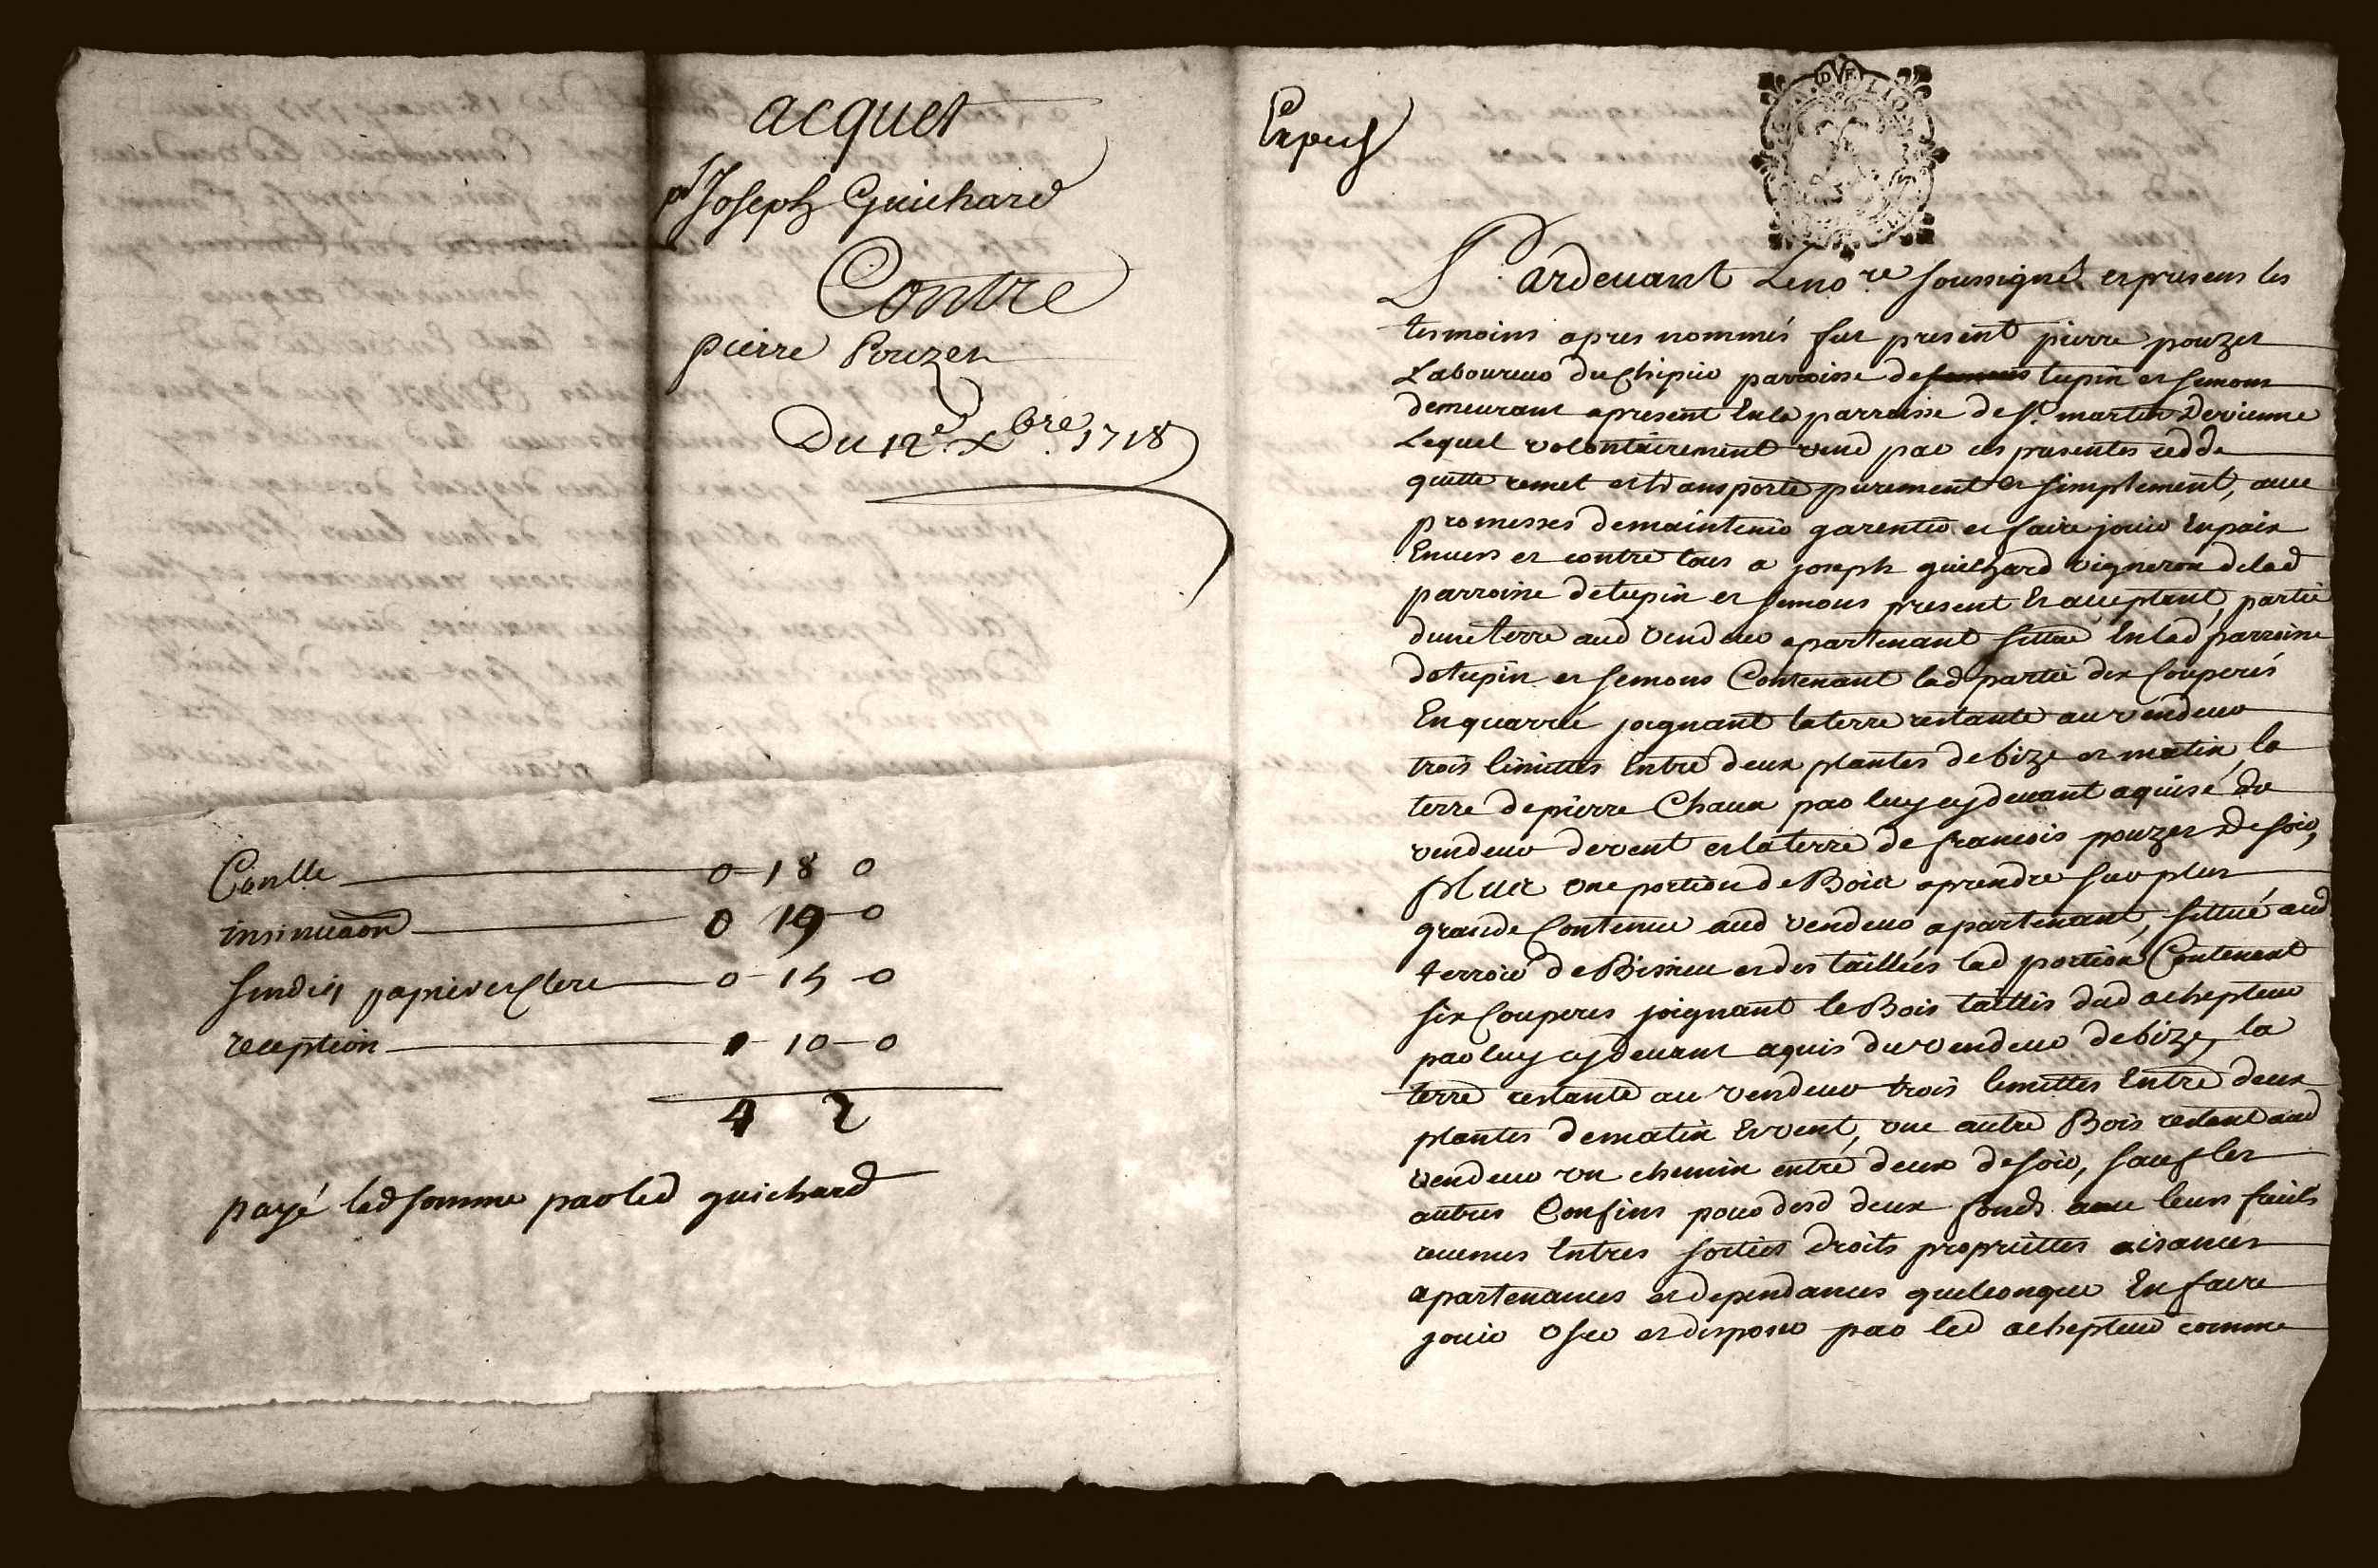 acquet
pr Joseph Guichard
Contre
pierre Pouzet
Du 12e xbre 1718
Conlle 0 18 0
insinuaon 0 19 0
papier et clerc 0 15 0
reception 1 10 0
4 2
payé lad somme par led guichard
Expedié
DE LION
Pardevant Le nore soussigné et presens les
tesmoins apres nommés fut present pierre pouzet
Laboureur du Chipier parroisse de semons tupin et semons
demeurant apresent En la parroisse de st martin De vienne
Lequel volontairement vend par ces presentes cedde
quitte remet et transporte purement et simplement, avec
promesses de maintenir garentir et faire jouir En paix
Envers et contre tous a joseph guichard vigneron de lad
parroisse de tupin et semons present Et acceptant, partie
dune terre aud vendeur apartenant sittue En lad parroisse
de tupin et semons Contenant lad partie dix Couperés
En quarré joignant la terre restante au vendeur
trois limittes Entre deux plantes de bize et matin, la
terre de pierre Chaux par luy cy devant aquise du
vendeur de vent et la terre de francois pouzet De soir,
Plus une portion de Bois a prendre sur plus
grande Contenue aud vendeur apartenant, sittué aud
terroir de Bissieu et des taillées lad portion Contenent
six Couperes joignant le Bois taillis dud achepteur
par luy cy devant aquis du vendeur de bize, la
terre restante au vendeur trois limittes Entre deux
plantes de matin Et vent, une autre Bois restant aud
vendeur un chemin entre deux de soir, sauf les
autres Confins pour desd deux fonds avec leurs fruits
revenus Entres sorties Droits propriettes aisances
apartenances et dependances quelconque En faire
jouir user et disposer par led achepteur comme